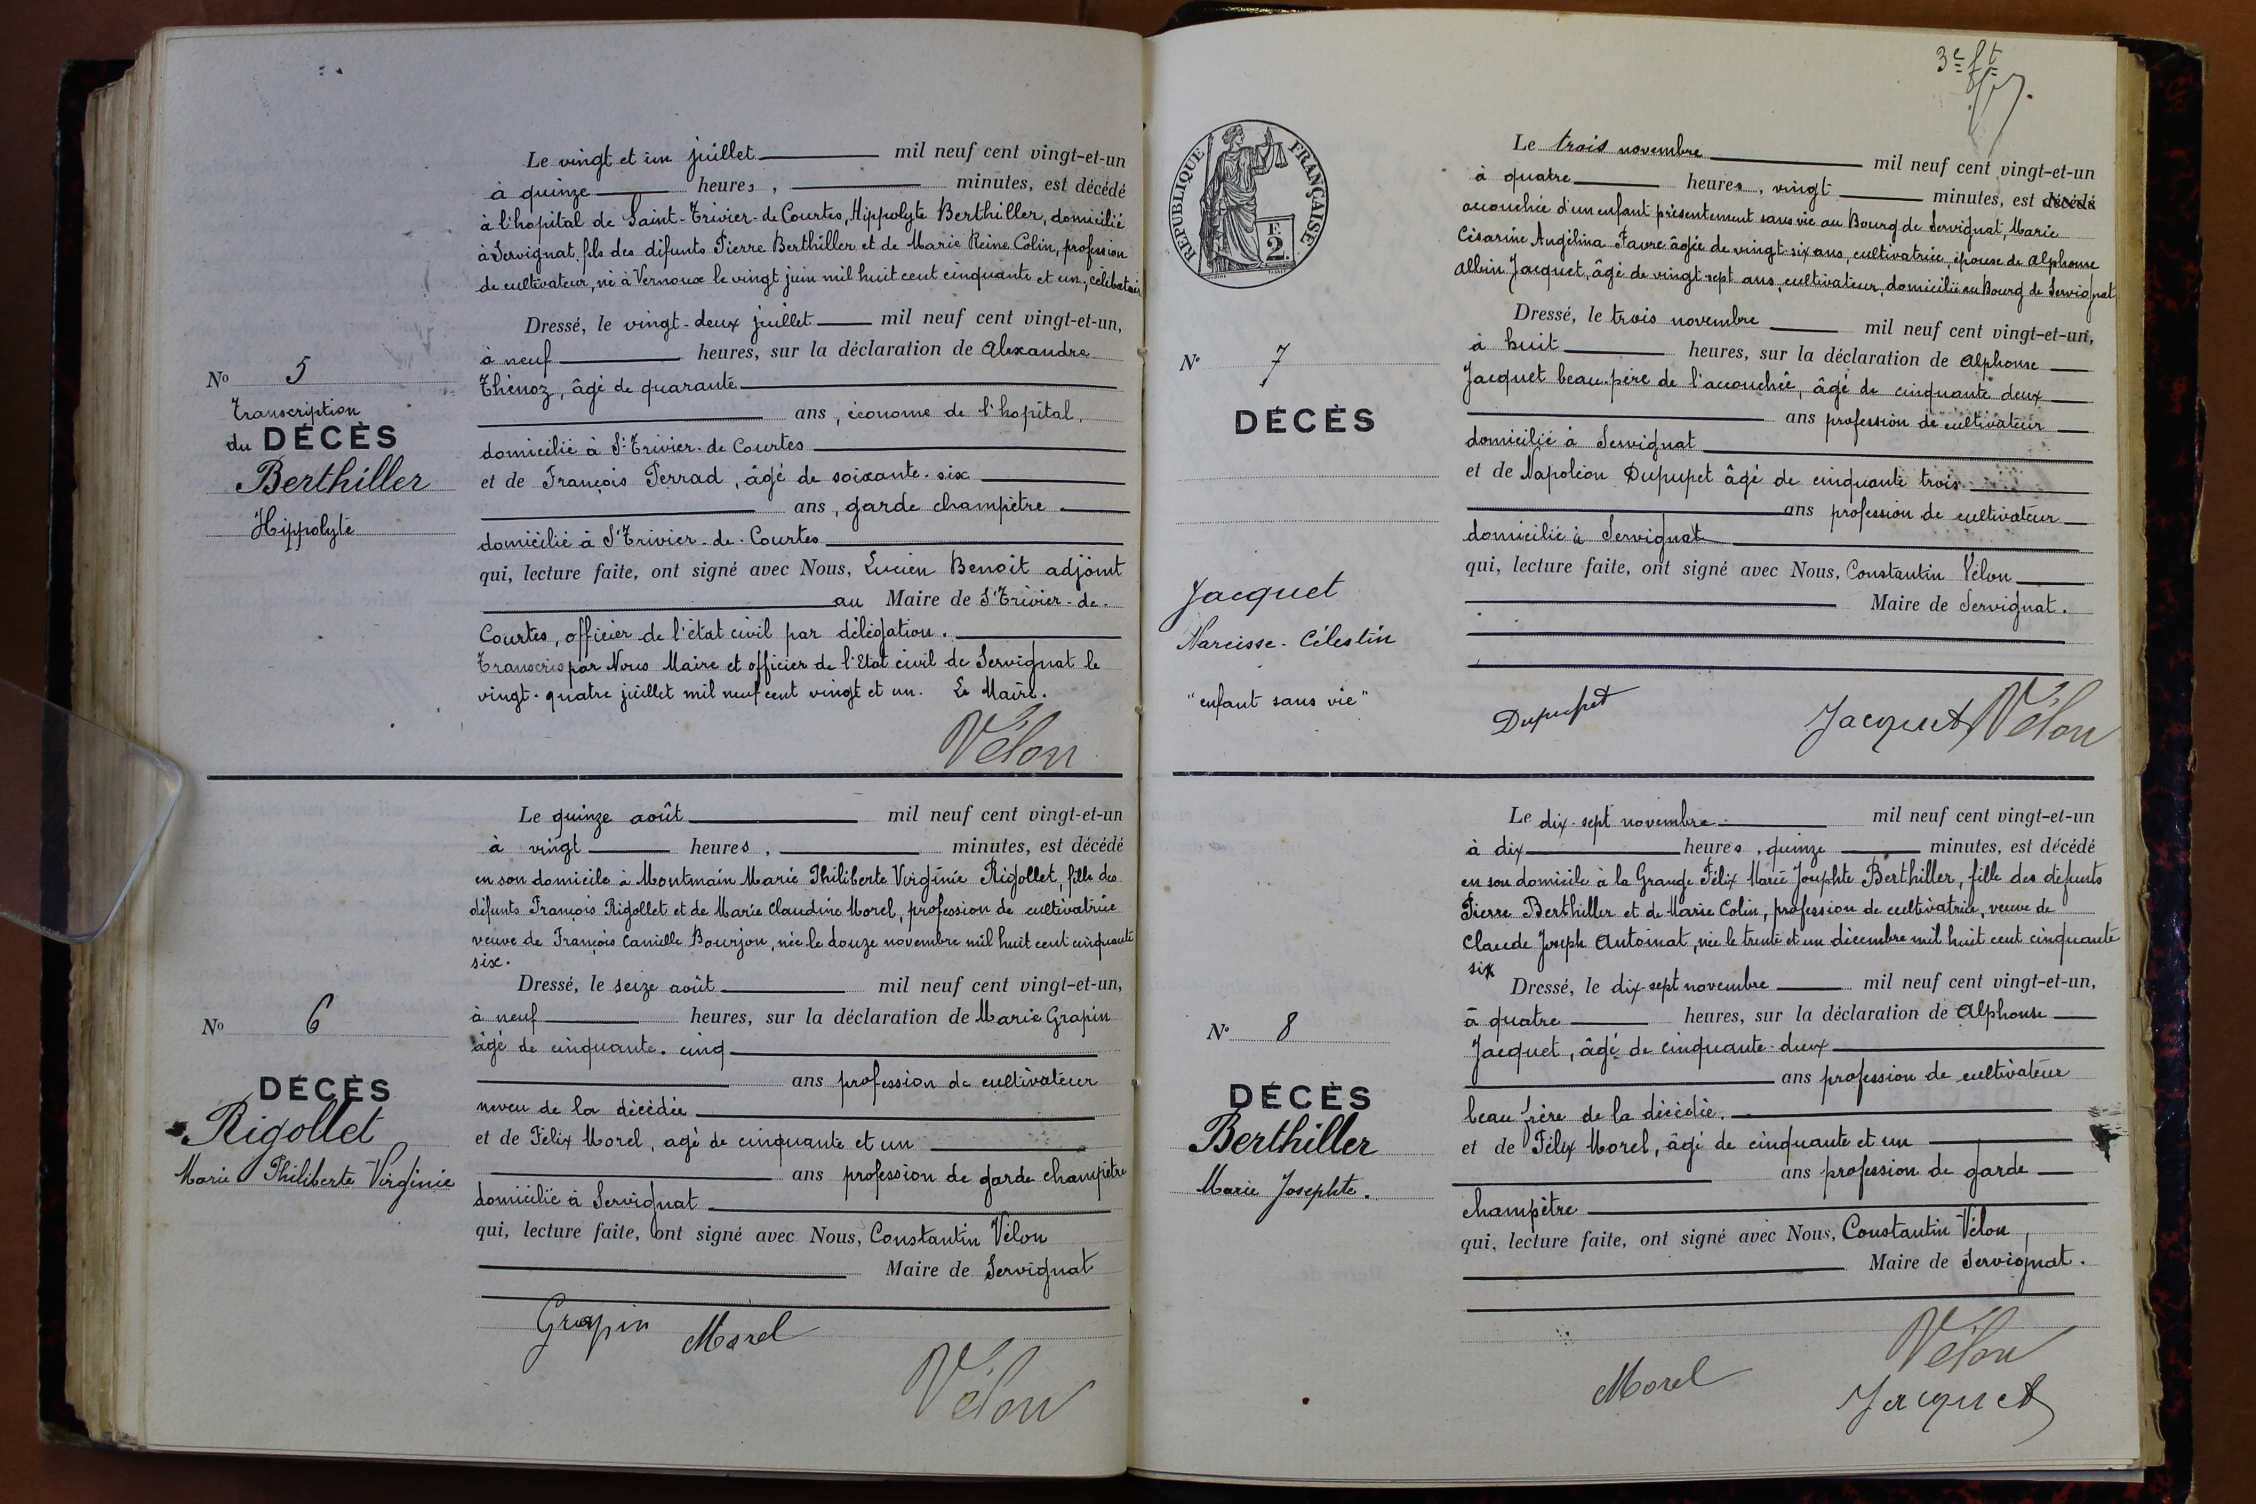 Le vingt et un juillet mil neuf cent vingt-et-un
à quinze heures, minutes, est décédé
à l'hopital de Saint-Trivier-de Courtes, Hippolyte Berthiller, domicilié
à Servignat, fils des défunts Pierre Berthiller et de Marie Reine Colin, profession
de cultivateur, né à Vernoux le vingt juin mil huit cent cinquante et un, célibataire
Dressé, le vingt-deux juillet mil neuf cent vingt-et-un,
à neuf heures, sur la déclaration de Alexandre
Thénoz, âgé de quarante
ans, économe de l'hopital,
domicilié à St-Trivier-de Courtes
et de François Perrad, âgé de soixante-six
ans, garde champêtre
domicilié à St Trivier-de-Courtes
qui, lecture faite, ont signé avec Nous, Lucien Benoit adjoint
au Maire de St Trivier-de-
Courtes, officier de l'état civil par délégation.
Transcris par Nous Maire et officier de l'Etat civil de Servignat le
vingt-quatre juillet mil neuf cent vingt et un. Le Maire.
Vélon
No 5
Transcription
du DÉCÈS
Berthiller
Hippolyte
Le quinze août mil neuf cent vingt-et-un
à vingt heures, minutes, est décédé
en son domicile à Montmain Marie Philiberte Virginie Rigollet, fille des
défunts François Rigollet et de Marie Claudine Morel, profession de cultivatrice
veuve de François Camille Bourjon, née le douze novembre mil huit cent cinquante
six.
Dressé, le seize août mil neuf cent vingt-et-un,
à neuf heures, sur la déclaration de Marie Grapin
âgé de cinquante-cinq
ans profession de cultivateur
neveu de la décédée
et de Félix Morel, agé de cinquante et un
ans profession de garde champêtre
domicilié à Servignat
qui, lecture faite, ont signé avec Nous, Constantin Vélon
Maire de Servignat
Grapin Morel
Vélon
No 6
DÉCÈS
Rigollet
Marie Philiberte Virginie
3e ft
RÉPUBLIQUE FRANÇAISE
F.
2.
Le trois novembre mil neuf cent vingt-et-un
à quatre heures, vingt minutes, est décédé
accouchée d'un enfant présentement sans vie au Bourg de Servignat, Marie
Césarine Angélina Favre âgée de vingt-six ans, cultivatrice, épouse de Alphonse
Albin Jacquet, âgé de vingt-sept ans, cultivateur, domicilié au Bourg de Servignat
Dressé, le trois novembre mil neuf cent vingt-et-un,
à huit heures, sur la déclaration de Alphonse
Jacquet beau-père de l'accouchée, âgé de cinquante deux
ans profession de cultivateur
domicilié à Servignat
et de Napoléon Dupupet âgé de cinquante trois
ans profession de cultivateur
domicilié à Servignat
qui, lecture faite, ont signé avec Nous, Constantin Vélon
Maire de Servignat.
Dupupet Jacquet Vélon
No 7
DÉCÈS
Jacquet
Narcisse-Célestin
"enfant sans vie"
Le dix-sept novembre mil neuf cent vingt-et-un
à dix heures, quinze minutes, est décédé
en son domicile à la Grange Félix Marie Josephte Berthiller, fille des défunts
Pierre Berthiller et de Marie Colin, profession de cultivatrice, veuve de
Claude Joseph Antoinat, née le trente et un décembre mil huit cent cinquante
six
Dressé, le dix-sept novembre mil neuf cent vingt-et-un,
à quatre heures, sur la déclaration de Alphonse
Jacquet, âgé de cinquante-deux
ans profession de cultivateur
beau frère de la décédée.
et de Félix Morel, âgé de cinquante et un
ans profession de garde
champêtre
qui, lecture faite, ont signé avec Nous, Constantin Vélon,
Maire de Servignat.
Vélon
Morel
Jacquet
No 8
DÉCÈS
Berthiller
Marie Josephte.